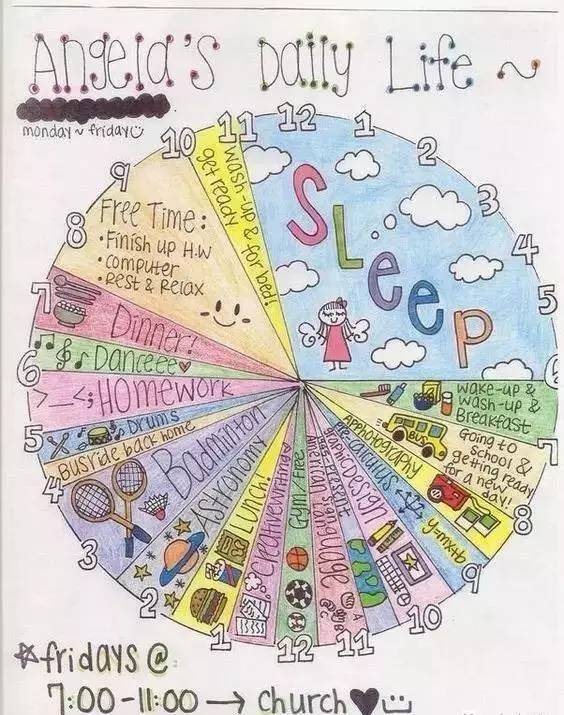 Angela's Daily Life ~
monday ~ friday
12
1
2
3
4
5
6
7
8
9
10
11
12
1
2
3
4
5
6
7
8
9
10
11
SLeep
wake-up &
wash-up &
Breakfast
Going to
school &
getting ready
for a new
day!
BUS
AP Photography
Pre-calculus
y=mx+b
graphic Design
American sign
Gym/Free
creative writing
Lunch!
Astronomy
Badminton
Bus ride back home
Drums
>_<; Homework
Danceee
Dinner!
Free Time:
• Finish up H.W
• computer
• Rest & Relax
wash-up &
get ready
for bed!
fridays @
7:00-11:00 → Church